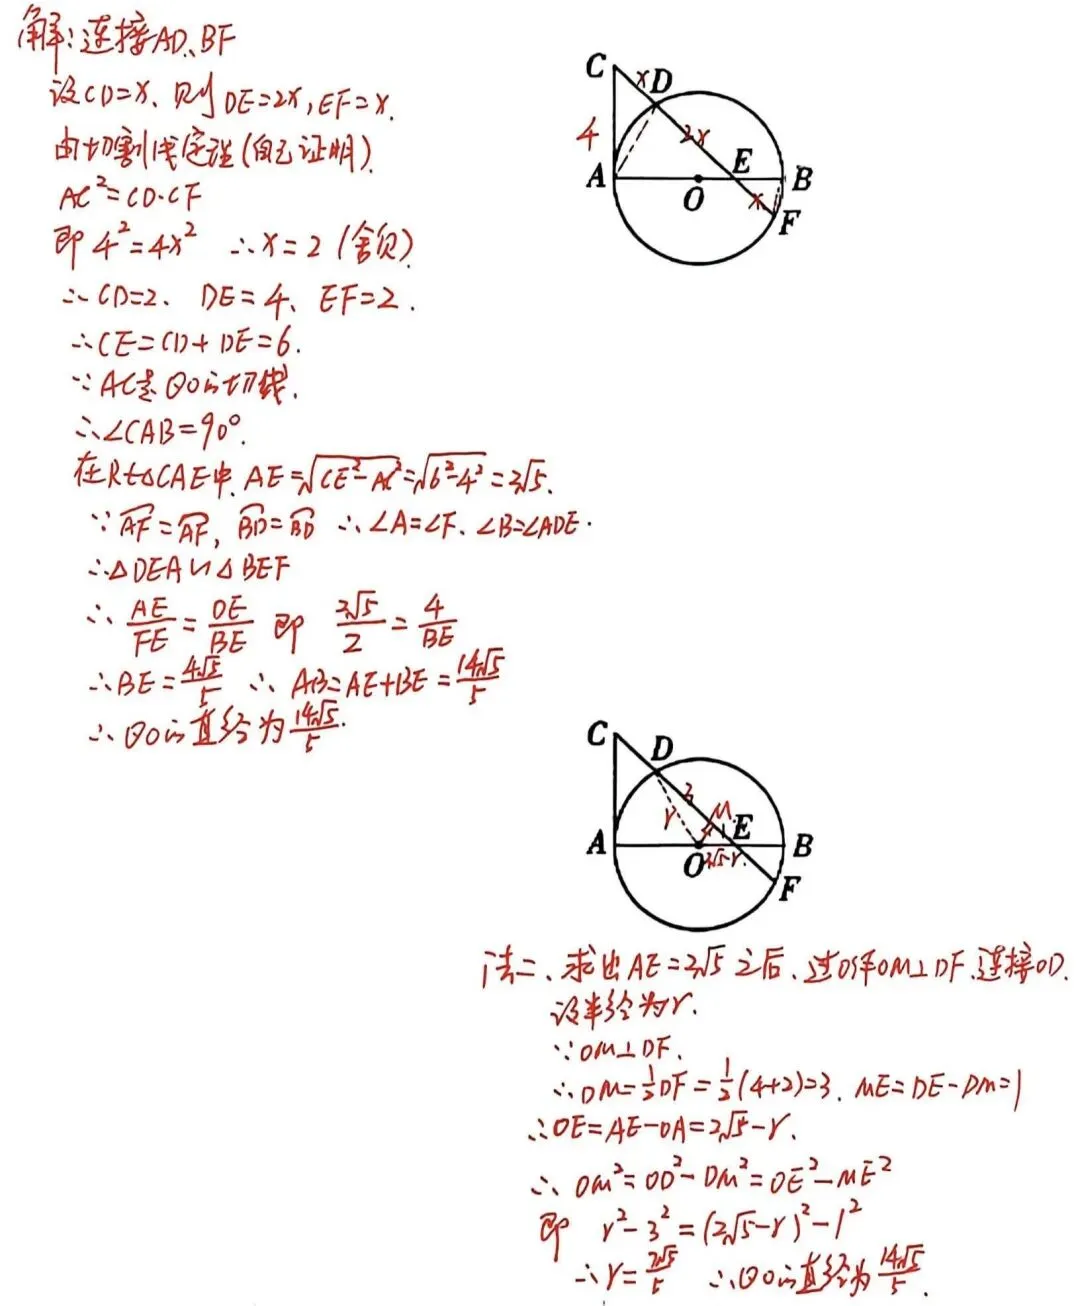 解:连接AD、BF
设CD=x、则DE=2x,EF=x.
由切割线定理(自己证明).
AC²=CD·CF
即 4²=4x² ∴x=2(舍负)
∴CD=2、DE=4、EF=2.
∴CE=CD+DE=6.
∵AC是⊙O的切线.
∴∠CAB=90°.
在Rt△CAE中、AE=√(CE²-AC²)=√(6²-4²)=2√5.
∵⌒AF=⌒AF, ⌒BD=⌒BD ∴∠A=∠F、∠B=∠ADE.
∴△DEA∽△BEF
∴ AE/FE = DE/BE 即 2√5/2 = 4/BE
∴BE=4√5/5 ∴AB=AE+BE=14√5/5
∴⊙O的直径为14√5/5.
C
x
D
4
2x
E
A
O
B
x
F
C
D
3
r
M
1
E
A
O
2√5-r.
B
F
法二、求出AE=2√5之后、过O作OM⊥DF、连接OD.
设半径为r.
∵OM⊥DF.
∴DM=1/2DF=1/2(4+2)=3. ME=DE-DM=1
∴OE=AE-OA=2√5-r.
∴OM²=OD²-DM²=OE²-ME²
即 r²-3²=(2√5-r)²-1²
∴r=7√5/5 ∴⊙O的直径为14√5/5.